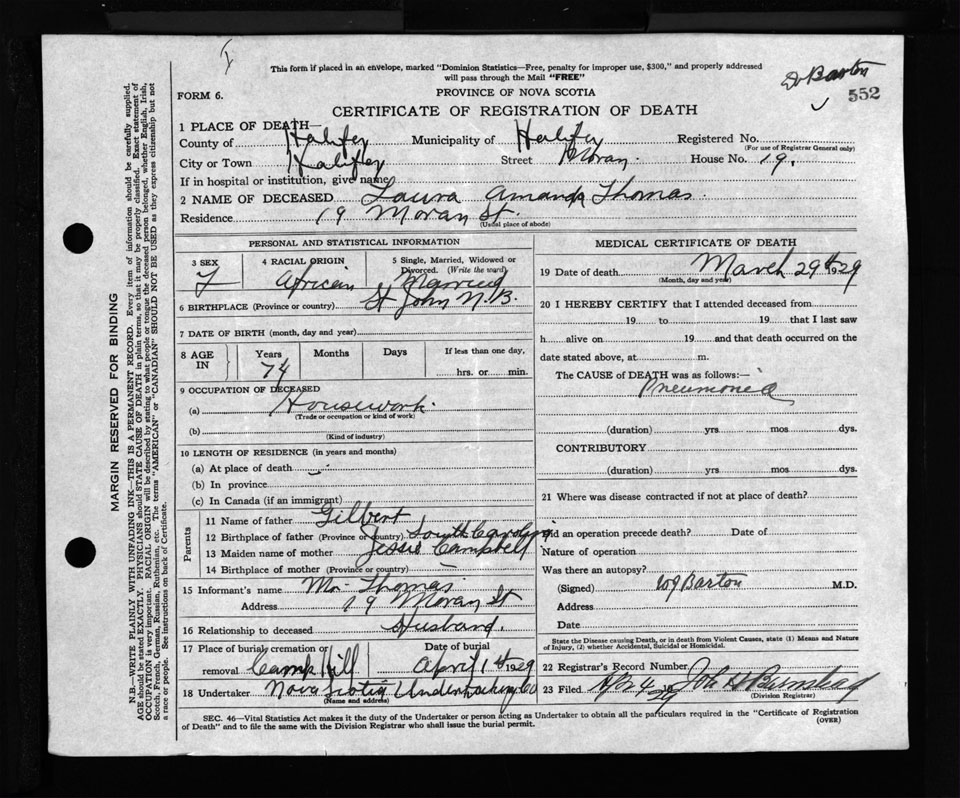 This form if placed in an envelope, marked "Dominion Statistics—Free, penalty for improper use, $300," and properly addressed
will pass through the Mail "FREE"
Dr Barton
FORM 6.
PROVINCE OF NOVA SCOTIA
552
CERTIFICATE OF REGISTRATION OF DEATH
1 PLACE OF DEATH—
County of Halifax Municipality of Halifax Registered No.
(For use of Registrar General only)
City or Town Halifax Street Moran. House No. 19.
If in hospital or institution, give name
2 NAME OF DECEASED Laura Amanda Thomas.
Residence 19 Moran St.
(Usual place of abode)
PERSONAL AND STATISTICAL INFORMATION
3 SEX 4 RACIAL ORIGIN 5 Single, Married, Widowed or
Divorced. (Write the word)
F African Married
6 BIRTHPLACE (Province or country) St John N.B.
7 DATE OF BIRTH (month, day and year)
8 AGE IN Years Months Days If less than one day,
74 hrs. or min.
9 OCCUPATION OF DECEASED
(a) Housework.
(Trade or occupation or kind of work)
(b)
(Kind of industry)
10 LENGTH OF RESIDENCE (in years and months)
(a) At place of death
(b) In province
(c) In Canada (if an immigrant)
Parents
11 Name of father Gilbert
12 Birthplace of father (Province or country) South Carolina
13 Maiden name of mother Jessie Campbell
14 Birthplace of mother (Province or country) —
15 Informant's name Mr. Thomas
Address 19 Moran St
16 Relationship to deceased Husband.
17 Place of burial, cremation or Date of burial
removal Camp Hill April 1st 1929
18 Undertaker Nova Scotia Undertaking Co
(Name and address)
MEDICAL CERTIFICATE OF DEATH
19 Date of death March 29th 1929
(Month, day and year)
20 I HEREBY CERTIFY that I attended deceased from
19 to 19 that I last saw
h alive on 19 and that death occurred on the
date stated above, at m.
The CAUSE of DEATH was as follows:—
Pneumonia
(duration) yrs mos dys.
CONTRIBUTORY
(duration) yrs. mos dys.
21 Where was disease contracted if not at place of death?
Did an operation precede death? Date of
Nature of operation
Was there an autopsy?
(Signed) W J Barton M.D.
Address
Date
State the Disease causing Death, or in death from Violent Causes, state (1) Means and Nature
of Injury, (2) whether Accidental, Suicidal or Homicidal.
22 Registrar's Record Number
23 Filed Apr 4 1929 John H
(Division Registrar)
SEC. 46—Vital Statistics Act makes it the duty of the Undertaker or person acting as Undertaker to obtain all the particulars required in the "Certificate of Registration
of Death" and to file the same with the Division Registrar who shall issue the burial permit.
(OVER)
MARGIN RESERVED FOR BINDING
N.B.—WRITE PLAINLY WITH UNFADING INK—THIS IS A PERMANENT RECORD. Every item of information should be carefully supplied.
AGE should be stated EXACTLY. PHYSICIANS should STATE CAUSE OF DEATH in plain terms, so that it may be properly classified. Exact statement of
OCCUPATION is very important. RACIAL ORIGIN will be described by stating to what people or tongue the deceased person belonged, whether English, Irish,
Scotch, French, German, Russian, Ruthenian, etc. The terms "AMERICAN" or "CANADIAN" SHOULD NOT BE USED as they express citizenship but not
a race or people. See instructions on back of Certificate.